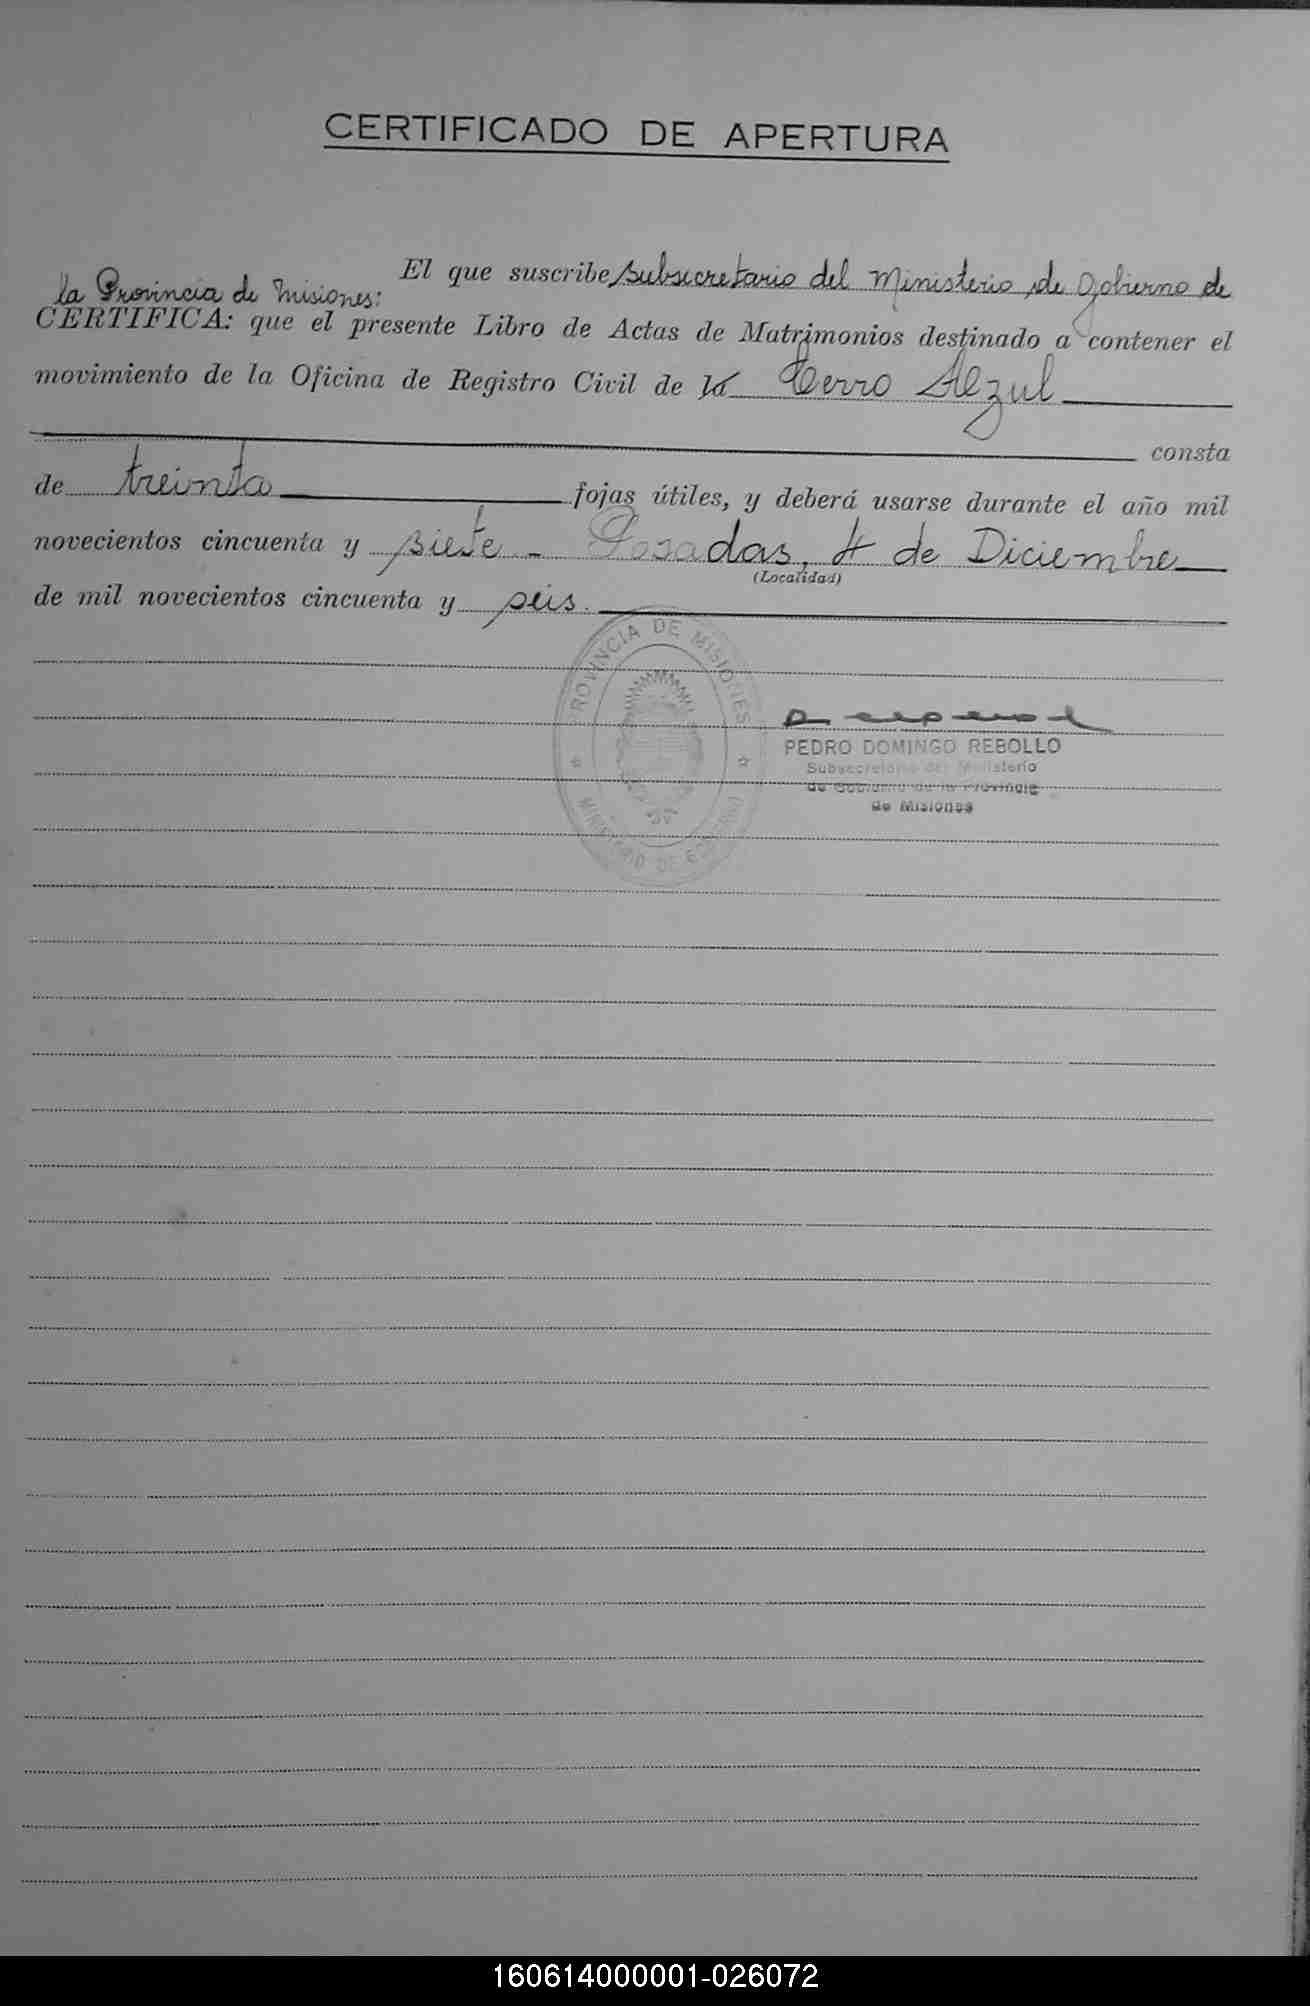 CERTIFICADO DE APERTURA
El que suscribe, Subsecretario del Ministerio de Gobierno de
la Provincia de Misiones:
CERTIFICA: que el presente Libro de Actas de Matrimonios destinado a contener el
movimiento de la Oficina de Registro Civil de la Cerro Azul
consta
de treinta fojas útiles, y deberá usarse durante el año mil
novecientos cincuenta y siete - Posadas, 4 de Diciembre
(Localidad)
de mil novecientos cincuenta y seis.
PROVINCIA DE MISIONES
MINISTERIO DE GOBIERNO
PEDRO DOMINGO REBOLLO
Subsecretario del Ministerio
de Gobierno de la Provincia
de Misiones
160614000001-026072